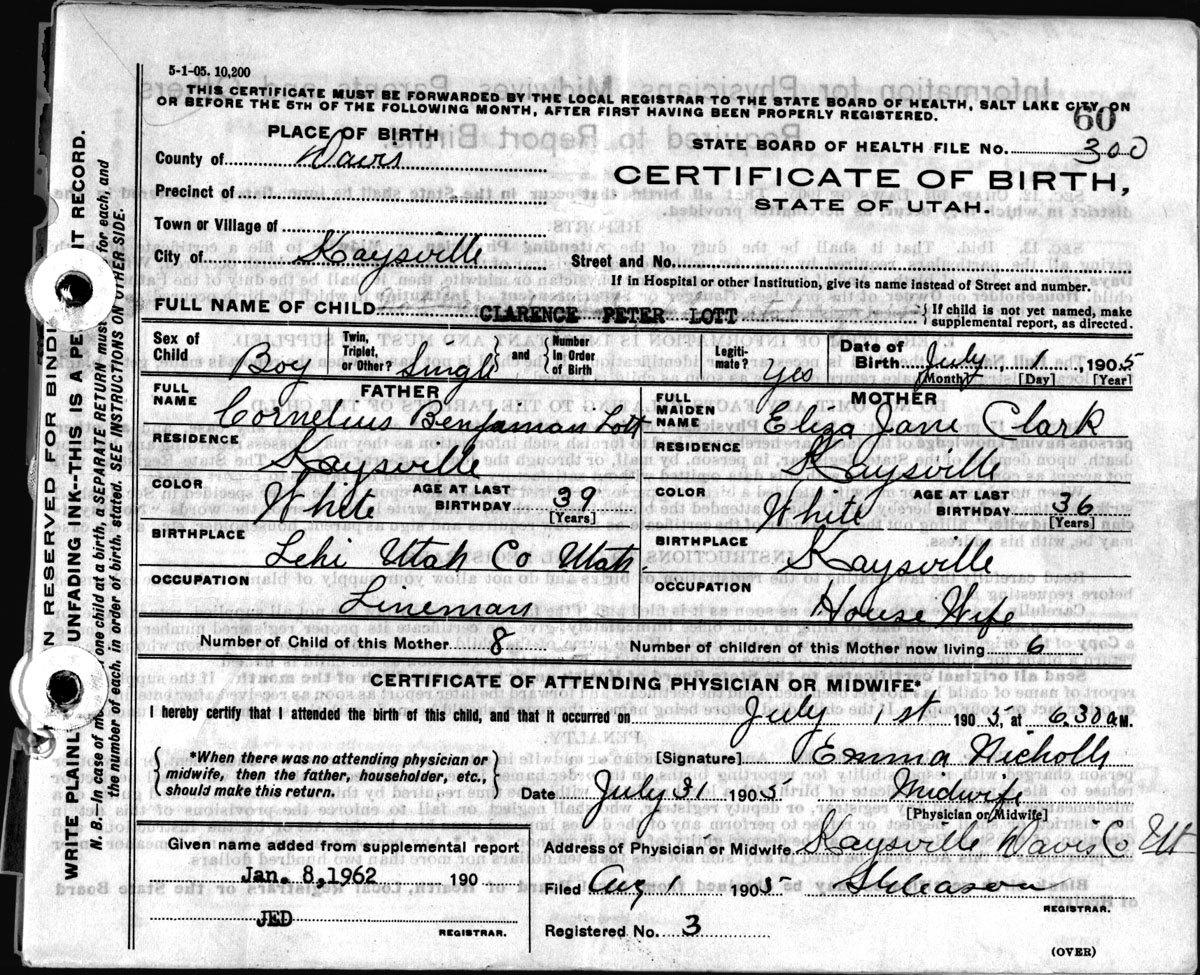 5-1-05. 10,200
THIS CERTIFICATE MUST BE FORWARDED BY THE LOCAL REGISTRAR TO THE STATE BOARD OF HEALTH, SALT LAKE CITY, ON
OR BEFORE THE 5TH OF THE FOLLOWING MONTH, AFTER FIRST HAVING BEEN PROPERLY REGISTERED.
60
PLACE OF BIRTH
STATE BOARD OF HEALTH FILE NO. 300
County of Davis
CERTIFICATE OF BIRTH,
STATE OF UTAH.
Precinct of
Town or Village of
City of Kaysville
Street and No.
If in Hospital or other Institution, give its name instead of Street and number.
FULL NAME OF CHILD CLARENCE PETER LOTT { If child is not yet named, make supplemental report, as directed.
Sex of Child Boy Twin, Triplet, or Other? Single } and { Number In Order of Birth Legiti-mate? yes Date of Birth July 1, 1905
[Month] [Day] [Year]
FATHER
FULL NAME Cornelius Benjaman Lott
RESIDENCE Kaysville
COLOR White AGE AT LAST BIRTHDAY 39 [Years]
BIRTHPLACE Lehi Utah Co Utah.
OCCUPATION Lineman
MOTHER
FULL MAIDEN NAME Eliza Jane Clark
RESIDENCE Kaysville
COLOR White AGE AT LAST BIRTHDAY 36 [Years]
BIRTHPLACE Kaysville
OCCUPATION House Wife
Number of Child of this Mother 8 Number of children of this Mother now living 6
CERTIFICATE OF ATTENDING PHYSICIAN OR MIDWIFE*
I hereby certify that I attended the birth of this child, and that it occurred on July 1st 1905, at 6.30 a M.
{ *When there was no attending physician or
midwife, then the father, householder, etc.,
should make this return. }
[Signature] Emma Nicholls
Date July 31 1905 Midwife
[Physician or Midwife]
Address of Physician or Midwife. Kaysville Davis Co Ut
Given name added from supplemental report
Jan. 8, 1962 190
JED
REGISTRAR.
Filed Aug 1 1905 Gleason
REGISTRAR.
Registered No. 3
(OVER)
N RESERVED FOR BINDI
WRITE PLAINL UNFADING INK--THIS IS A PE IT RECORD.
N. B.--In case of mo one child at a birth, a SEPARATE RETURN must for each, and
the number of each, in order of birth, stated. SEE INSTRUCTIONS ON OTHER SIDE.